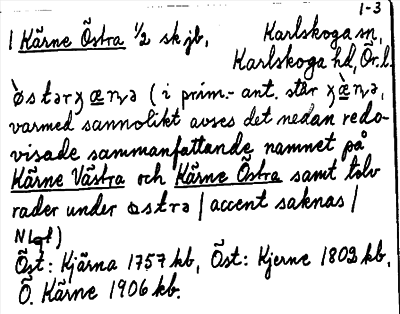 1-3
1 Kärne Östra 1/2 sk jb, Karlskoga sn,
Karlskoga hd, Ör. l.
(i prim.-ant. står
varmed sannolikt avses det nedan redo-
visade sammanfattande namnet på
Kärne Västra och Kärne Östra samt tolv
rader under østrə / accent saknas /
Öst: Kjärna 1757 kb, Öst: Kjerne 1802 kb,
Ö. Kärne 1906 kb.